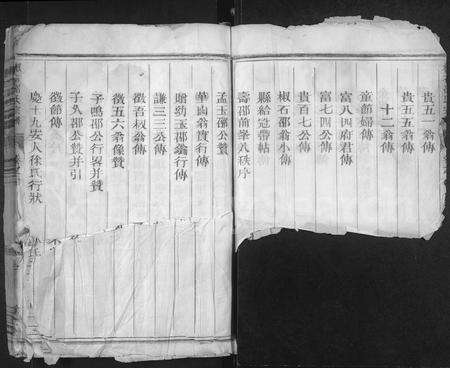 貴五一翁傳
貴五五翁傳
十二翁傳
童節婦傳
富八四府君傳
富七四公傳
貴百七公傳
椒石邵翁小傳
縣給冠帶帖
壽邵前峯八秩序
孟玉邵公贊
華西翁實行傳
贈幼玉邵翁行傳
謙三三公傳
徵吾椒翁傳
徵五六翁像贊
子鳴邵公行畧并贊
子久邵公贊并引
徵節傳
慶十九安人徐氏行狀